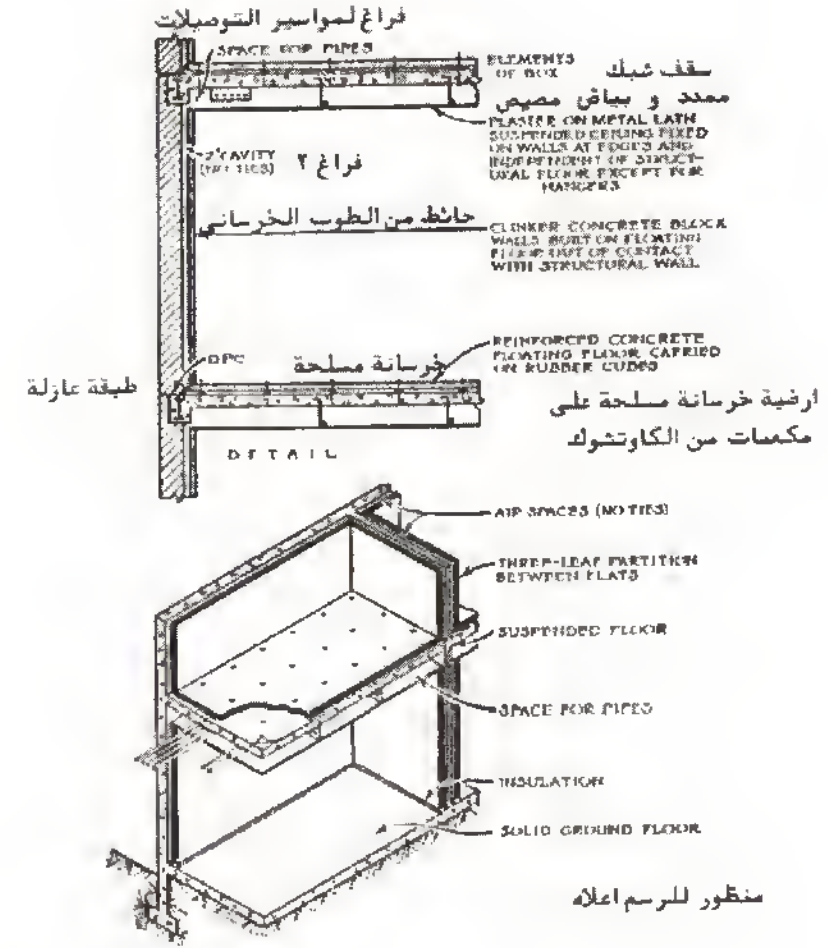 فراغ لمواسير التوصيلات
SPACE FOR PIPES
ELEMENTS
OF BOX
سقف شبك
ممدد و بياض مصيص
PLASTER ON METAL LATH
SUSPENDED CEILING FIXED
ON WALLS AT EDGES AND
INDEPENDENT OF STRUCT-
URAL FLOOR EXCEPT FOR
HANGERS
2" CAVITY
(NO TIES)
فراغ ٢
حائط من الطوب الخرسانى
CLINKER CONCRETE BLOCK
WALLS BUILT ON FLOATING
FLOOR OUT OF CONTACT
WITH STRUCTURAL WALL
DPC
خرسانة مسلحة
REINFORCED CONCRETE
FLOATING FLOOR CARRIED
ON RUBBER CUBES
طبقة عازلة
ارضية خرسانة مسلحة على
مكعبات من الكاوتشوك
DETAIL
AIR SPACES (NO TIES)
THREE-LEAF PARTITION
BETWEEN FLATS
SUSPENDED FLOOR
SPACE FOR PIPES
INSULATION
SOLID GROUND FLOOR
منظور للرسم اعلاه